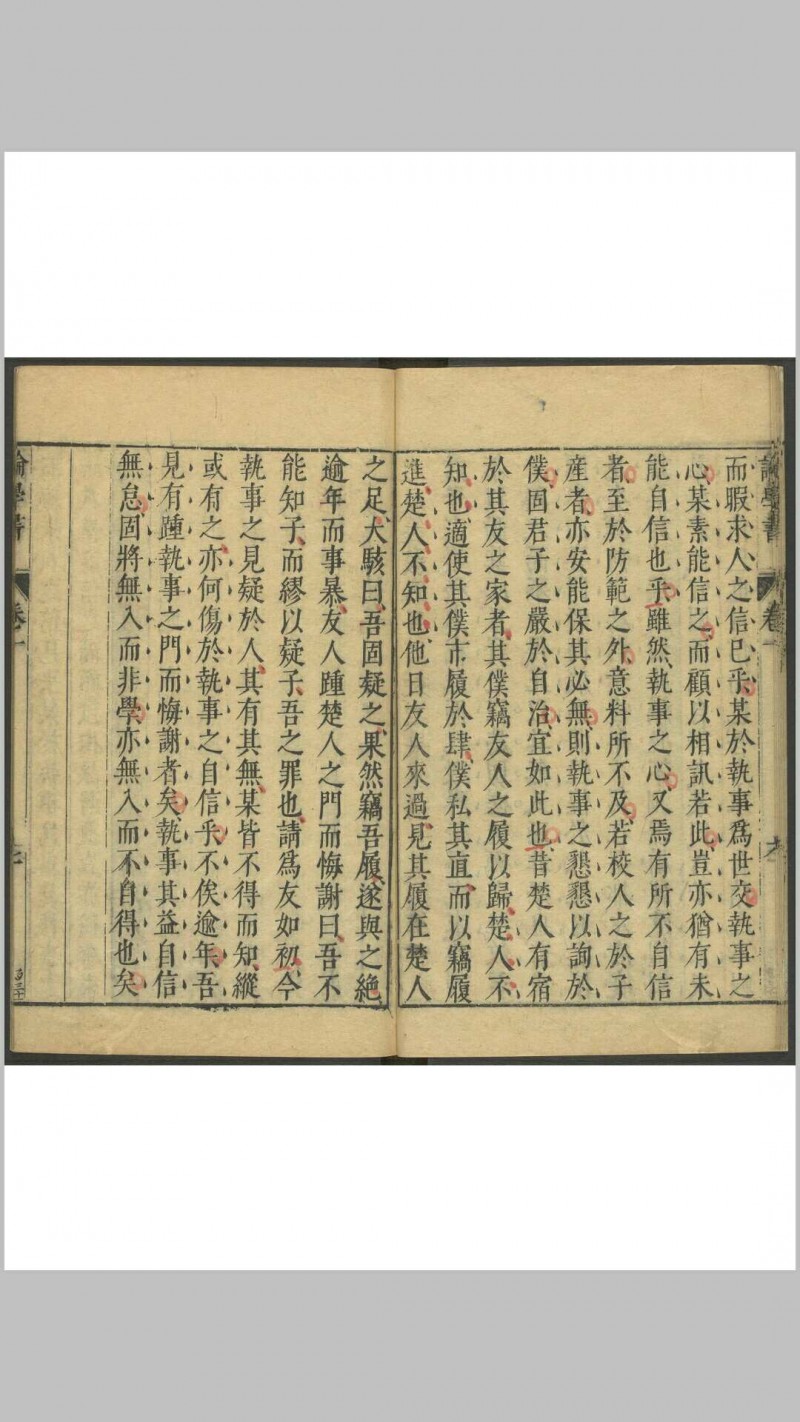 而暇求人之信已乎某於執事爲世交執事之
心某素能信之而顧以相訊若此豈亦猶有未
能自信也乎雖然執事之心又焉有所不自信
者至於防範之外意料所不及若校人之於子
産者亦安能保其必無則執事之懇懇以詢於
僕固君子之嚴於自治宜如此也昔楚人有宿
於其友之家者其僕竊友人之履以歸楚人不
知也適使其僕市履於肆僕私其直而以竊履
進楚人不知也他日友人來過見其履在楚人
之足大駭曰吾固疑之果然竊吾履遂與之絶
逾年而事暴友人踵楚人之門而悔謝曰吾不
能知子而繆以疑子吾之罪也請爲友如初今
執事之見疑於人其有其無某皆不得而知縱
或有之亦何傷於執事之自信乎不俟逾年吾
見有踵執事之門而悔謝者矣執事其益自信
無怠固將無入而非學亦無入而不自得也矣
論學書 卷一